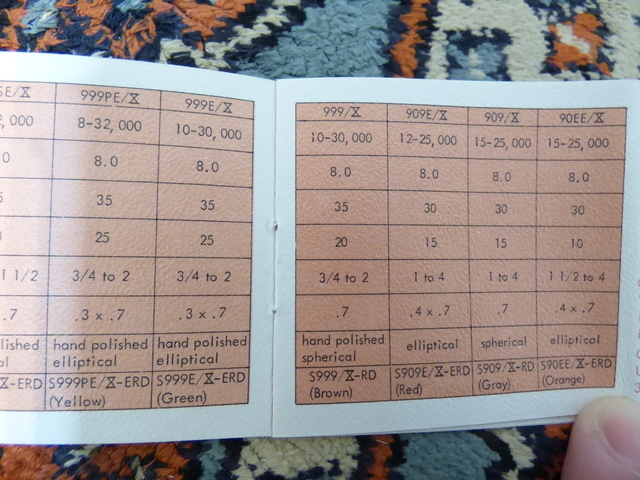 5E/X 999PE/X 999E/X
,000 8-32,000 10-30,000
0 8.0 8.0
5 35 35
0 25 25
1 1/2 3/4 to 2 3/4 to 2
.7 .3 x .7 .3 x .7
lished hand polished hand polished
al elliptical elliptical
/X-ERD S999PE/X-ERD S999E/X-ERD
(Yellow) (Green)
999/X 909E/X 909/X 90EE/X
10-30,000 12-25,000 15-25,000 15-25,000
8.0 8.0 8.0 8.0
35 30 30 30
20 15 15 10
3/4 to 2 1 to 4 1 to 4 1 1/2 to 4
.7 .4 x .7 .7 .4 x .7
hand polished elliptical spherical elliptical
spherical
S999/X-RD S909E/X-ERD S909/X-RD S90EE/X-ERD
(Brown) (Red) (Gray) (Orange)